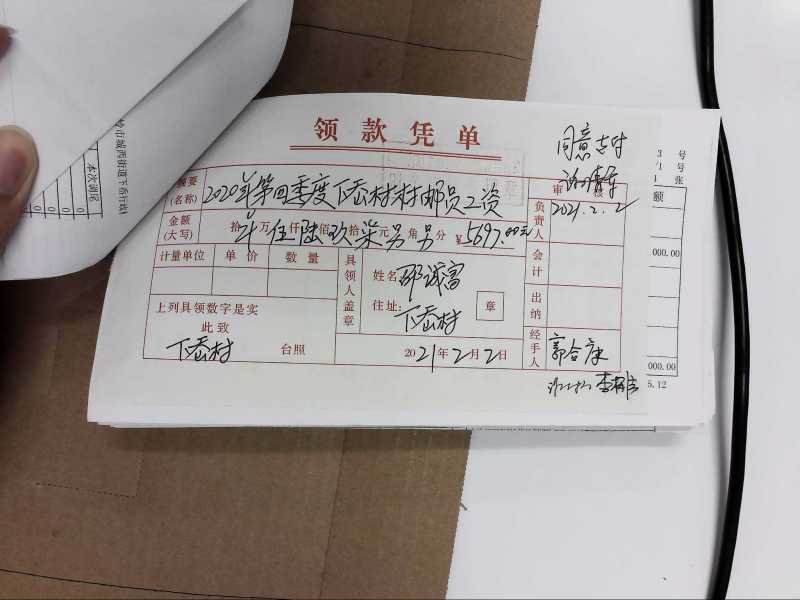 领款凭单
同意支付
摘要
(名称)
2020年第四季度下岙村村邮员工资
审 核
2021.2.2
金额
(大写)
拾 万 伍仟陆佰玖拾柒元 角 分 ¥5697.00元
负责人
计量单位 单价 数量
具领人盖章
姓名
住址:
下岙村
章
会计
出纳
上列具领数字是实
此致
下岙村 台照
2021年2月2日
经手人
郭合康
本次测尾
0
0
0
0
岭市城西街道下岙行线
号
号
张
额
000.00
000.00
5.12